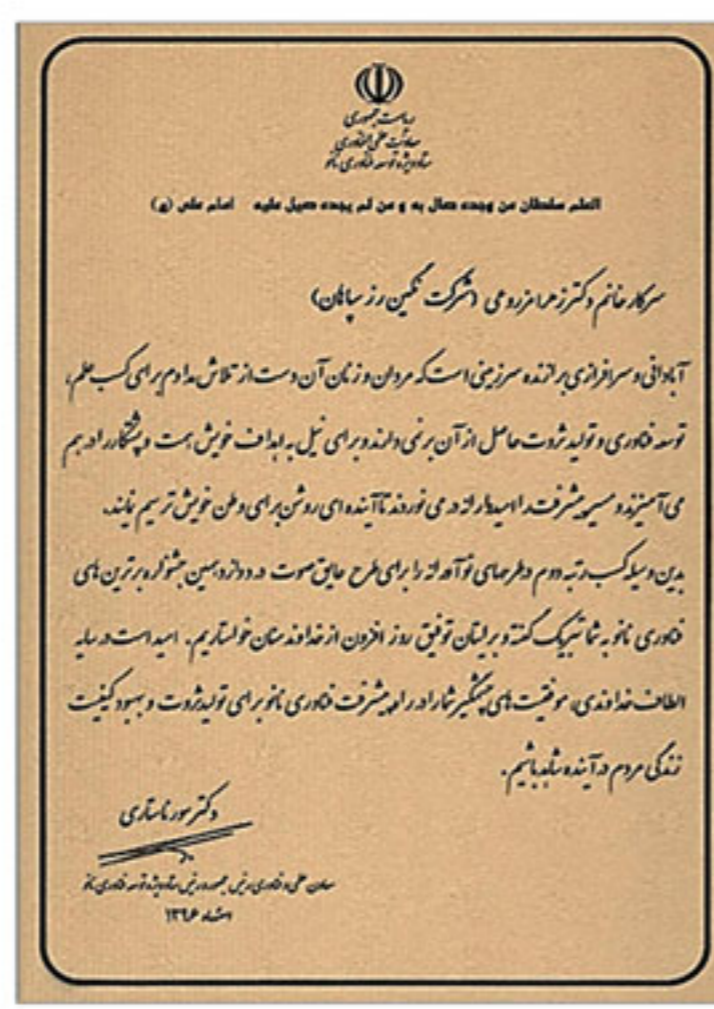 ریاست جمهوری
معاونت علمی و فناوری
ستاد ویژه توسعه فناوری نانو
العلم سلطان من وجده صال به و من لم یجده صیل علیه امام علی (ع)
سرکار خانم دکتر زهرا مزروعی (شرکت نگین رز سپاهان)
آبادانی و سرافرازی برازنده سرزمینی است که مردان و زنان آن دست از تلاش مدام برای کسب علم،
توسعه فناوری و تولید ثروت حاصل از آن برنمی دارند و برای نیل به اهداف خویش همت و پشتکار را در هم
می آمیزند و مسیر پیشرفت را امیدوارانه در می نوردند تا آینده ای روشن برای وطن خویش ترسیم نمایند.
بدین وسیله کسب رتبه دوم در طرحهای نوآورانه را برای طرح عایق صوت در دوازدهمین جشنواره برترین های
فناوری نانو به شما تبریک گفته و برایتان توفیق روز افزون از خداوند منان خواستاریم. امید است در سایه
الطاف خداوندی، موفقیت های چشمگیر شما را در راه پیشرفت فناوری نانو برای تولید ثروت و بهبود کیفیت
زندگی مردم در آینده شاهد باشیم.
دکتر سورنا ستاری
معاون علمی و فناوری رئیس جمهور و رئیس ستاد ویژه توسعه فناوری نانو
۱۳۹۶